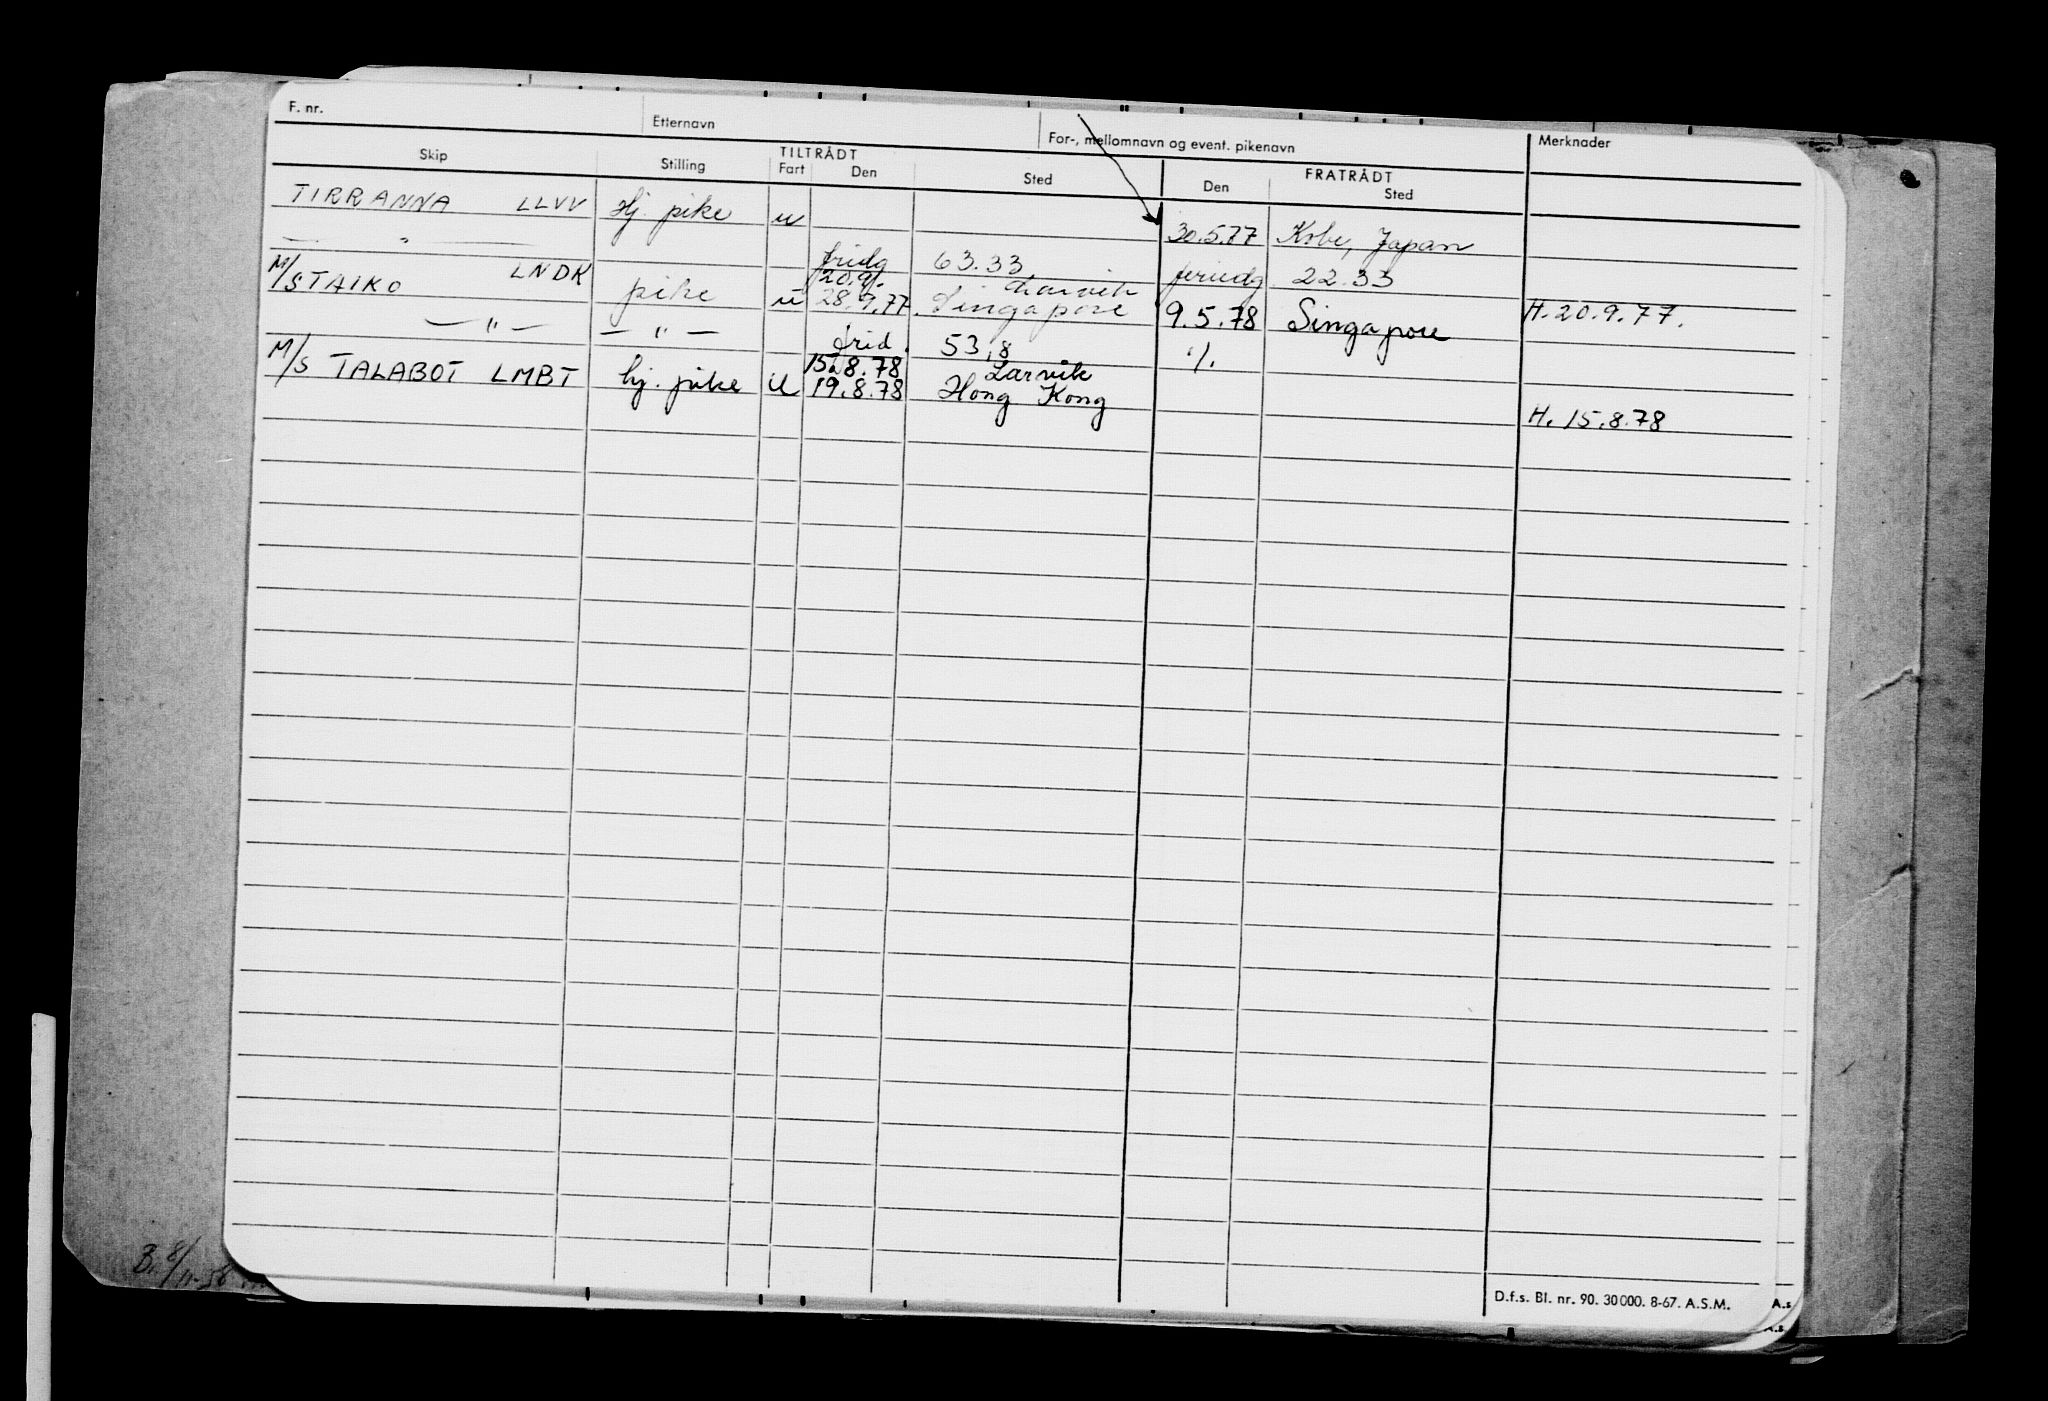 F. nr. Etternavn For-, mellomnavn og event. pikenavn Merknader
TILTRÅDT FRATRÅDT
Skip Stilling Fart Den Sted Den Sted
TIRRANNA LLVV Hj. pike u 30.5.77 Kobe, Japan
— " — fridg 63.33 feriedg. 22.33
20.9. Larvik
M/S TAIKO LNDK pike u 28.9.77. Singapore 9.5.78 Singapore H. 20.9.77.
— " — — " — frid. 53,8 ./.
15.8.78 Larvik
M/S TALABOT LMBT hj. pike u 19.8.78 Hong Kong H. 15.8.78
B. 8/11-56
D.f.s. Bl. nr. 90. 30000. 8-67. A.S.M.
A.s
A.s